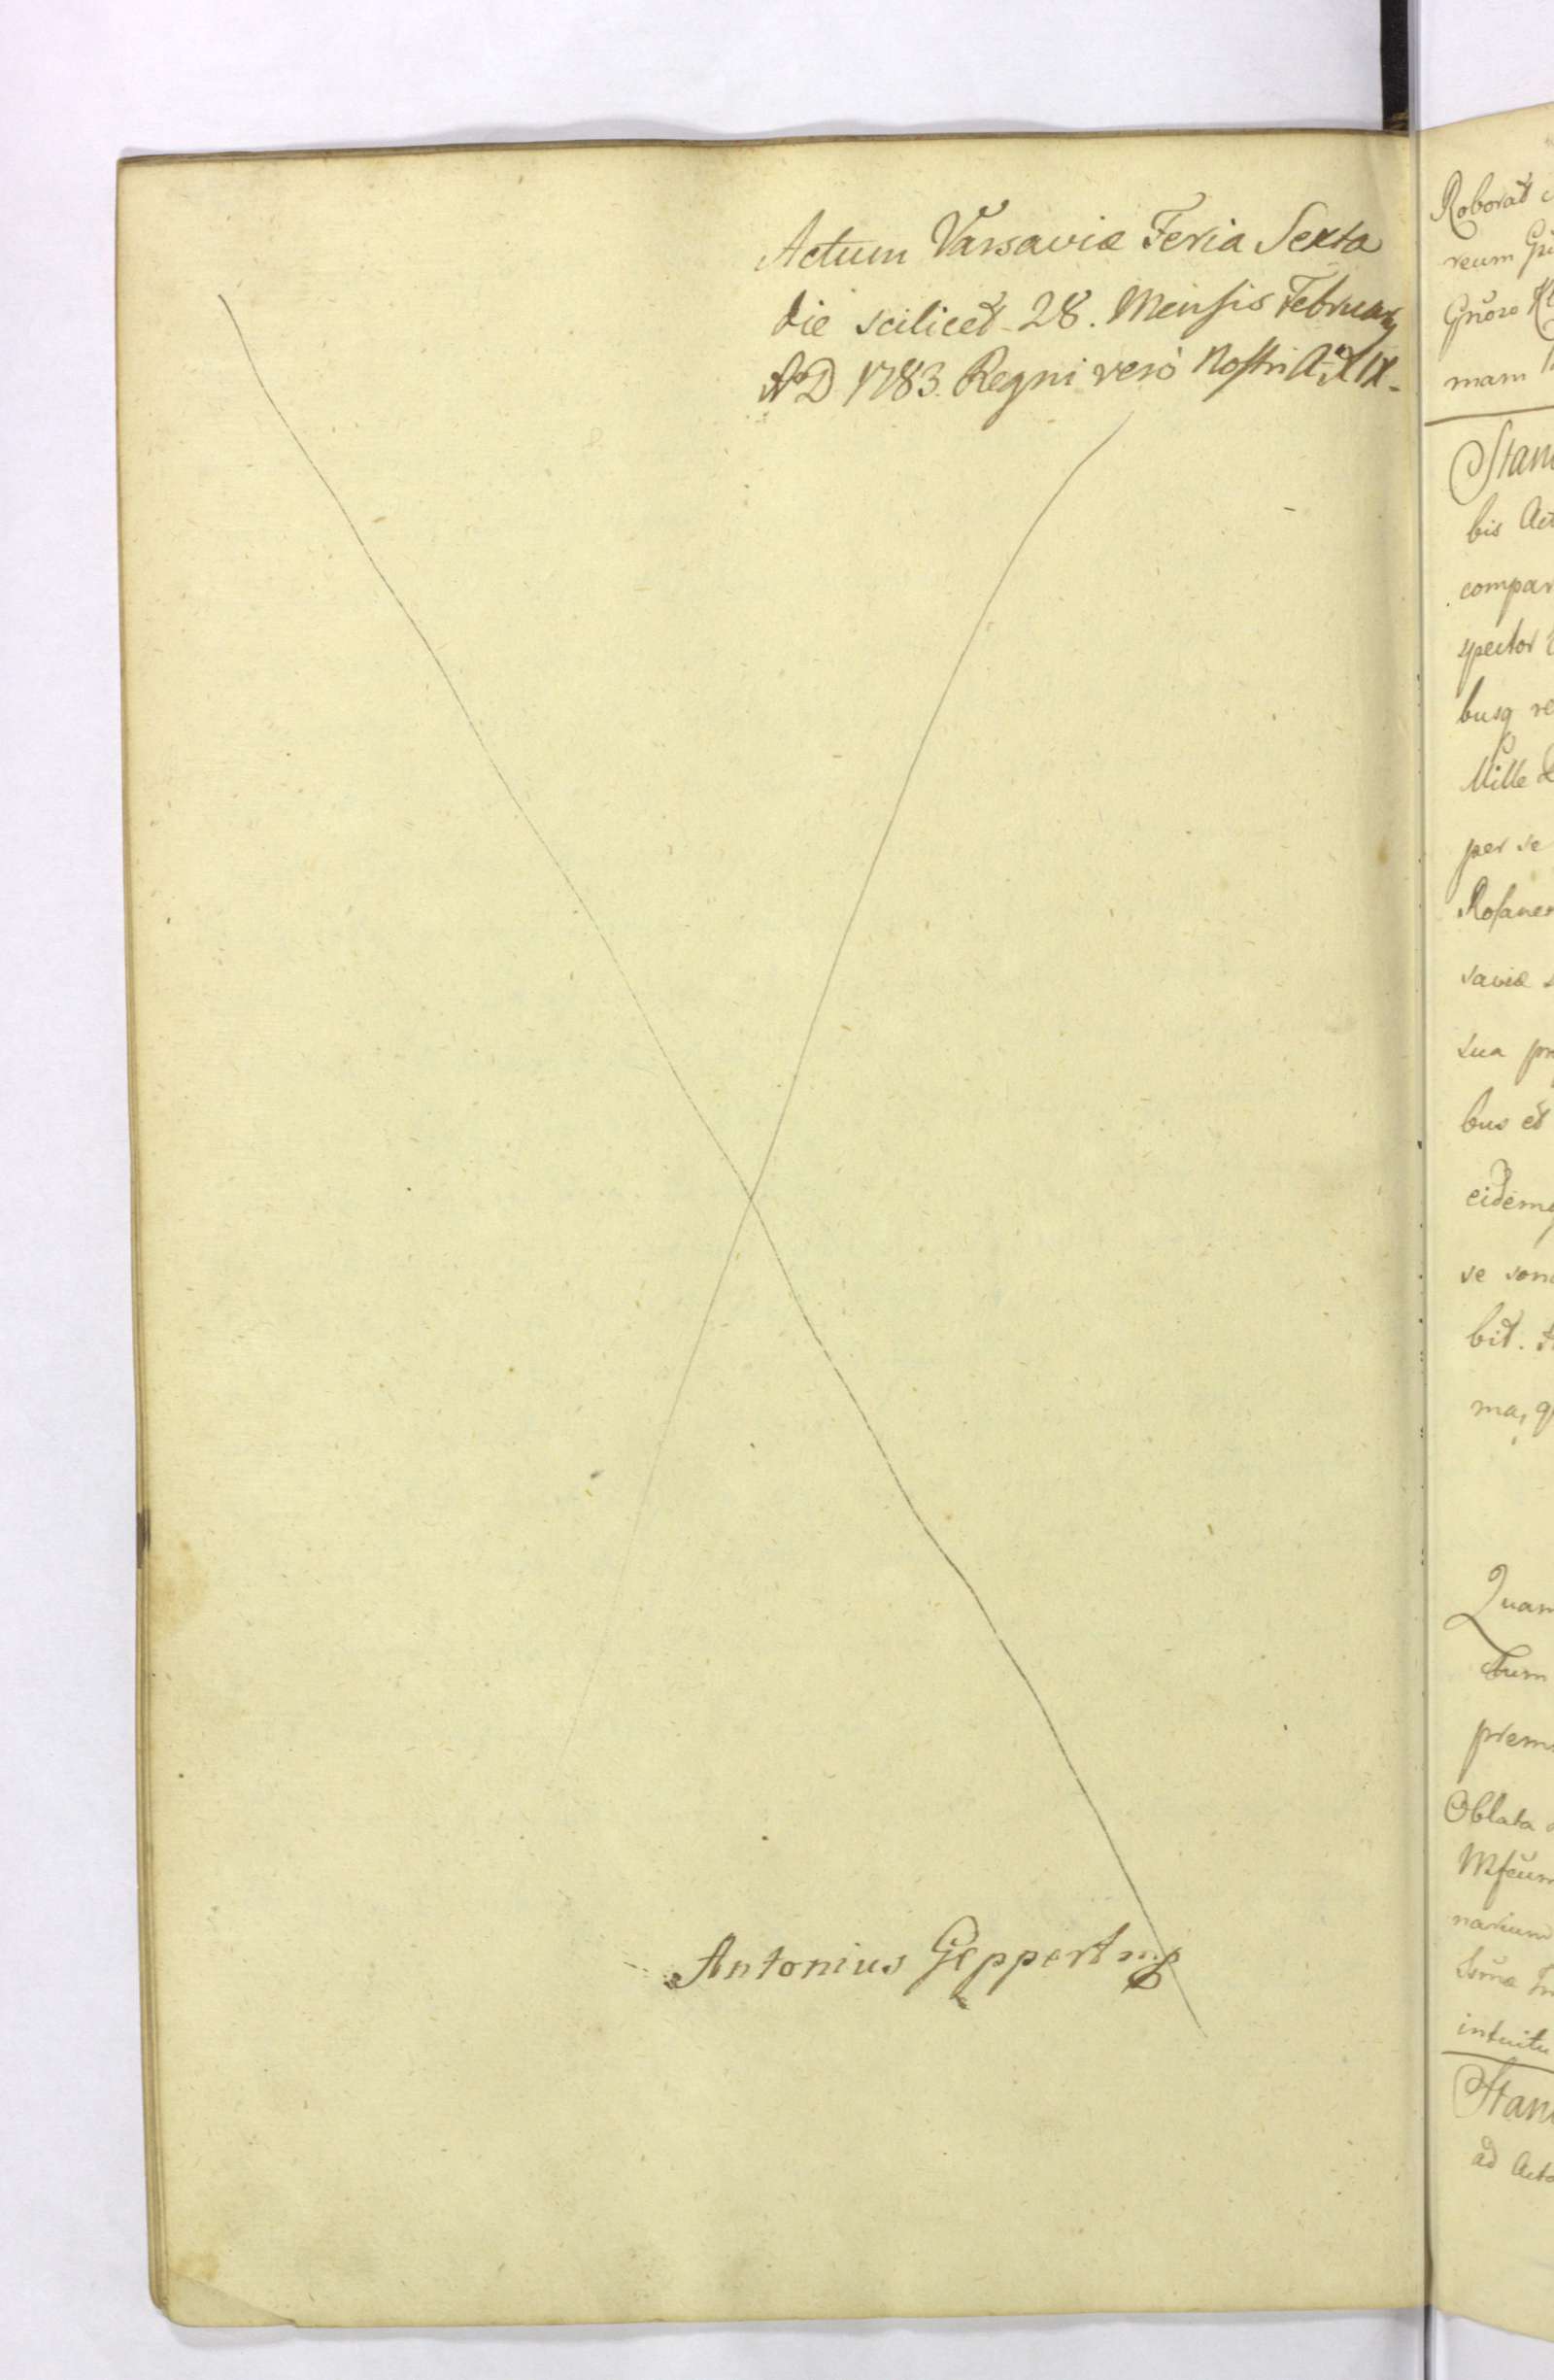 Actum Varsaviæ Feria Sexta
die scilicet 28. Mensis Februarij
A.D 1783. Regni verò Nostri Aō XIX.
Antonius Geppert mp
Roborat
reum
Gnoso
mam
Stani
bis Act
compar
spector
busq re
Mille
per se
saviæ
sua
bus et
eidemq
se
bit.
ma,
Quam
ctum
præm
Oblata
narium
intuitu
Stani
ad Acta